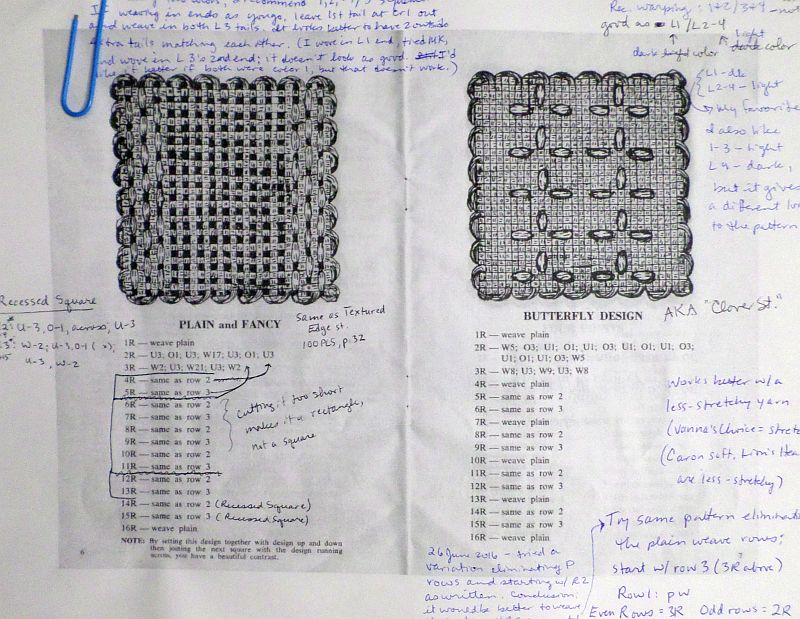 I weaving in ends as
leave 1st tail at cr1 out
and weave in both L3 tails. It looks better to have 2 outside
extra tails matching each other. (I wove in L1 end, tried
and wove in L3's 2nd end; it doesn't look as good. I'd
like it better if both were color 1, but that doesn't work.)
Rec. warping: 1+2/3+4 - not
good as L1/L2-4
light
dark light color dark color
L1 - dk
L2-4 - light
My favorite
I also like
1-3 - light
L4 - dark,
but it gives
a different look
to the pattern
Recessed Square
U-3, O-1, across, U-3
W-2; U-3, O-1
U-3, W-2
PLAIN and FANCY
Same as Textured
Edge st.
100 PLS, p. 32
1R — weave plain
2R — U3; O1; U3, W17; U3; O1; U3
3R — W2; U3; W21; U3; W2
4R — same as row 2
5R — same as row 3
6R — same as row 2
7R — same as row 3
8R — same as row 2
9R — same as row 3
10R — same as row 2
11R — same as row 3
12R — same as row 2
13R — same as row 3
14R — same as row 2 (Recessed Square)
15R — same as row 3 (Recessed Square)
16R — weave plain
cutting it too short
makes it a rectangle,
not a square
NOTE: By setting this design together with design up and down
then joining the next square with the design running
across, you have a beautiful contrast.
6
BUTTERFLY DESIGN
AKA "Clover St."
1R — weave plain
2R — W5; O3; U1; O1; U1; O3; U1; O1; U1; O3;
U1; O1; U1; O3; W5
3R — W8; U3; W9; U3; W8
4R — weave plain
5R — same as row 2
6R — same as row 3
7R — weave plain
8R — same as row 2
9R — same as row 3
10R — weave plain
11R — same as row 2
12R — same as row 3
13R — weave plain
14R — same as row 2
15R — same as row 3
16R — weave plain
Works better w/a
less-stretchy yarn
(Vanna's Choice = stretchy
(Caron soft, Lion's Hea
are less-stretchy)
Try same pattern eliminating
the plain weave rows;
start w/ row 3 (3R above)
Row 1: pw
Even Rows = 3R Odd rows = 2R
26 June 2016 - tried a
variation eliminating P
rows and starting w/ R2
as written. Conclusion:
it would be better to weave